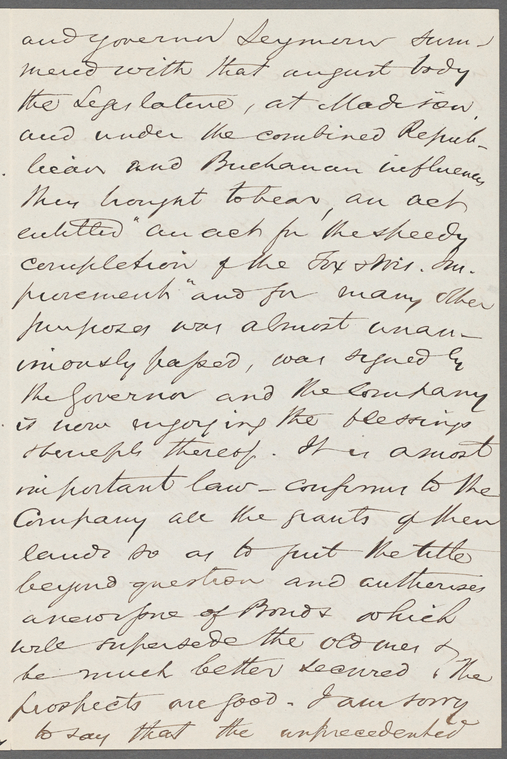 and Governor Seymour sum-
mered with that august body
the Legislature, at Madison,
and under the combined Repub-
lican and Buchanan influences
they brought to bear, an act
entitled "an act for the speedy
completion of the Fox & Wis. Im-
provement" and for many other
purposes was almost unan-
imously passed, was signed by
the Governor and the Company
is now enjoying the blessings
& benefits thereof. It is a most
important law - confirms to the
Company all the grants of their
lands so as to put the title
beyond question and authorises
a new issue of Bonds which
will supersede the old ones &
be much better secured & the
prospects are good - I am sorry
to say that the unprecedented